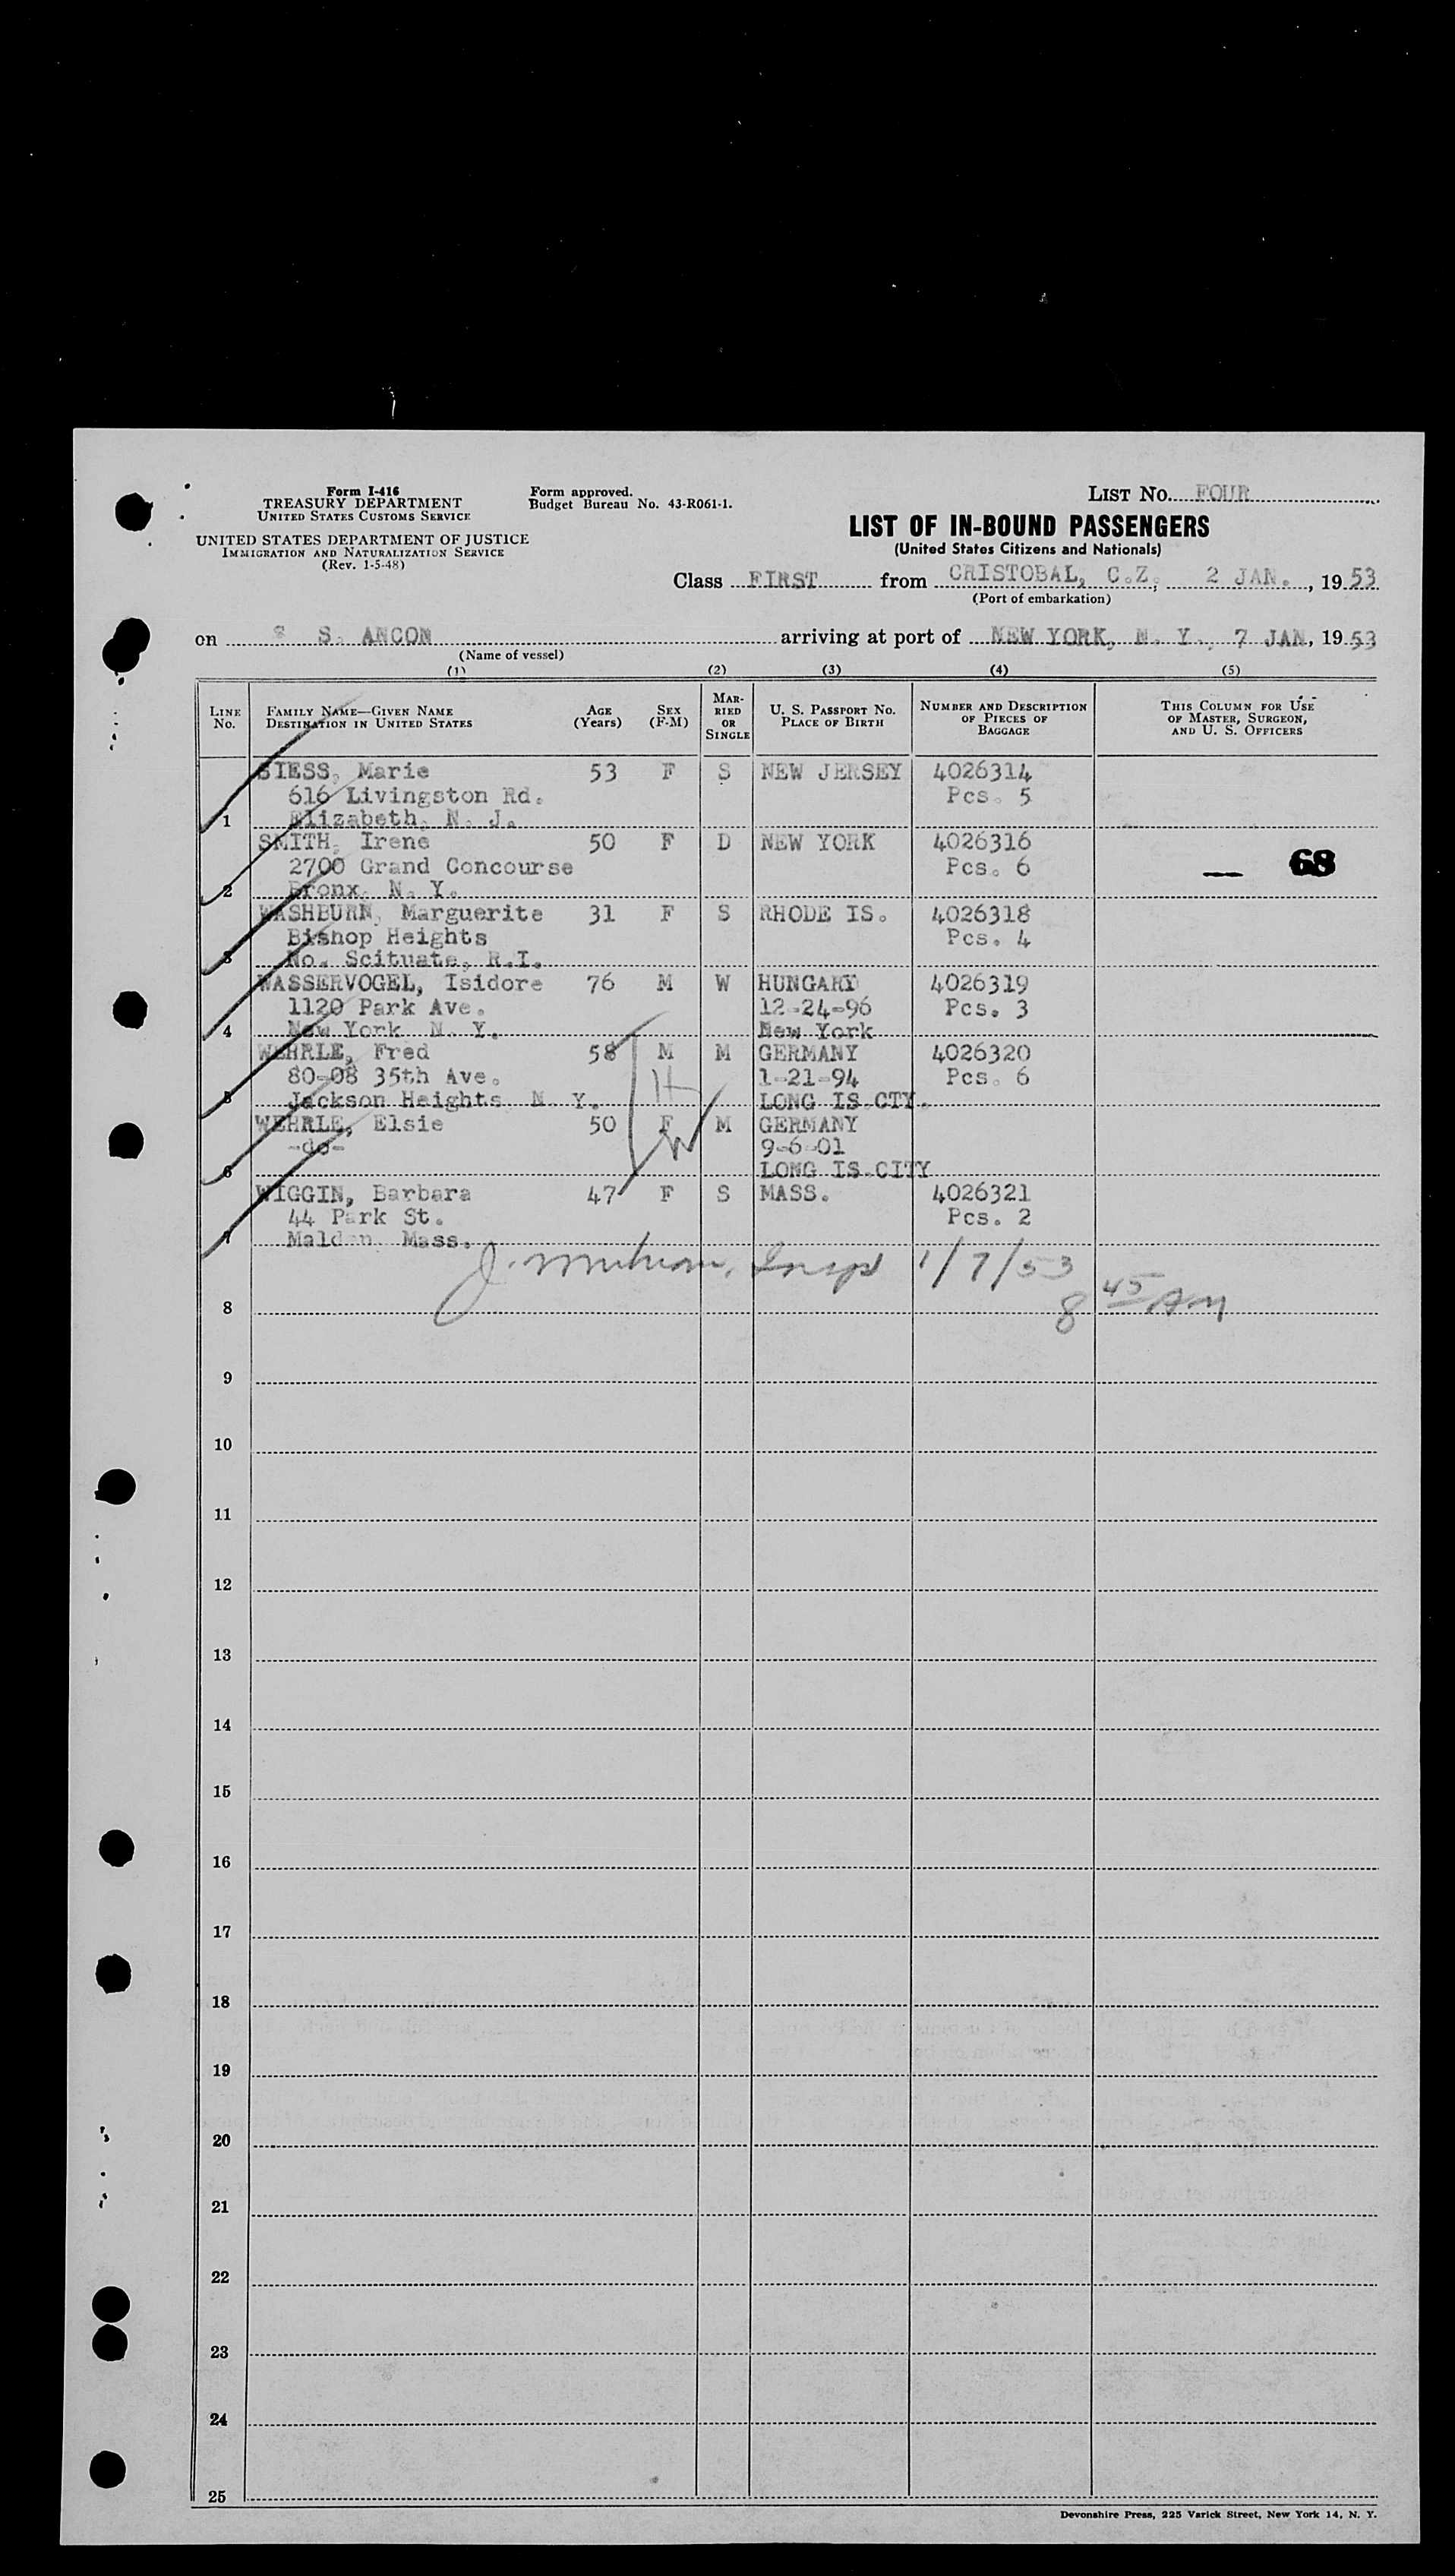 Form I-416
TREASURY DEPARTMENT
UNITED STATES CUSTOMS SERVICE
UNITED STATES DEPARTMENT OF JUSTICE
IMMIGRATION AND NATURALIZATION SERVICE
(Rev. 1-5-48)
Form approved.
Budget Bureau No. 43-R061-1.
LIST NO. FOUR
LIST OF IN-BOUND PASSENGERS
(United States Citizens and Nationals)
Class FIRST from CRISTOBAL, C.Z., 2 JAN., 1953
(Port of embarkation)
on S S. ANCON arriving at port of NEW YORK, N. Y., 7 JAN, 1953
(Name of vessel)
(1) (2) (3) (4) (5)
LINE NO. FAMILY NAME—GIVEN NAME DESTINATION IN UNITED STATES AGE (Years) SEX (F-M) MARRIED OR SINGLE U. S. PASSPORT NO. PLACE OF BIRTH NUMBER AND DESCRIPTION OF PIECES OF BAGGAGE THIS COLUMN FOR USE OF MASTER, SURGEON, AND U. S. OFFICERS
SIESS, Marie 53 F S NEW JERSEY 4026314
616 Livingston Rd. Pcs. 5
1 Elizabeth, N. J.
SMITH, Irene 50 F D NEW YORK 4026316
2700 Grand Concourse Pcs. 6 — 68
2 Bronx, N. Y.
WASHBURN, Marguerite 31 F S RHODE IS. 4026318
Bishop Heights Pcs. 4
3 No. Scituate, R.I.
WASSERVOGEL, Isidore 76 M W HUNGARY 4026319
1120 Park Ave. 12-24-96 Pcs. 3
4 New York N. Y. New York
WEHRLE, Fred 58 M M GERMANY 4026320
80-08 35th Ave. 1-21-94 Pcs. 6
5 Jackson Heights N. Y. LONG IS.CTY.
WEHRLE, Elsie 50 F M GERMANY
-do- 9-6-01
6 LONG IS.CITY
WIGGIN, Barbara 47 F S MASS. 4026321
44 Park St. Pcs. 2
7 Malden Mass.
J. Insp 1/7/53
8 8 45 AM
9
10
11
12
13
14
15
16
17
18
19
20
21
22
23
24
25
Devonshire Press, 225 Varick Street, New York 14, N. Y.